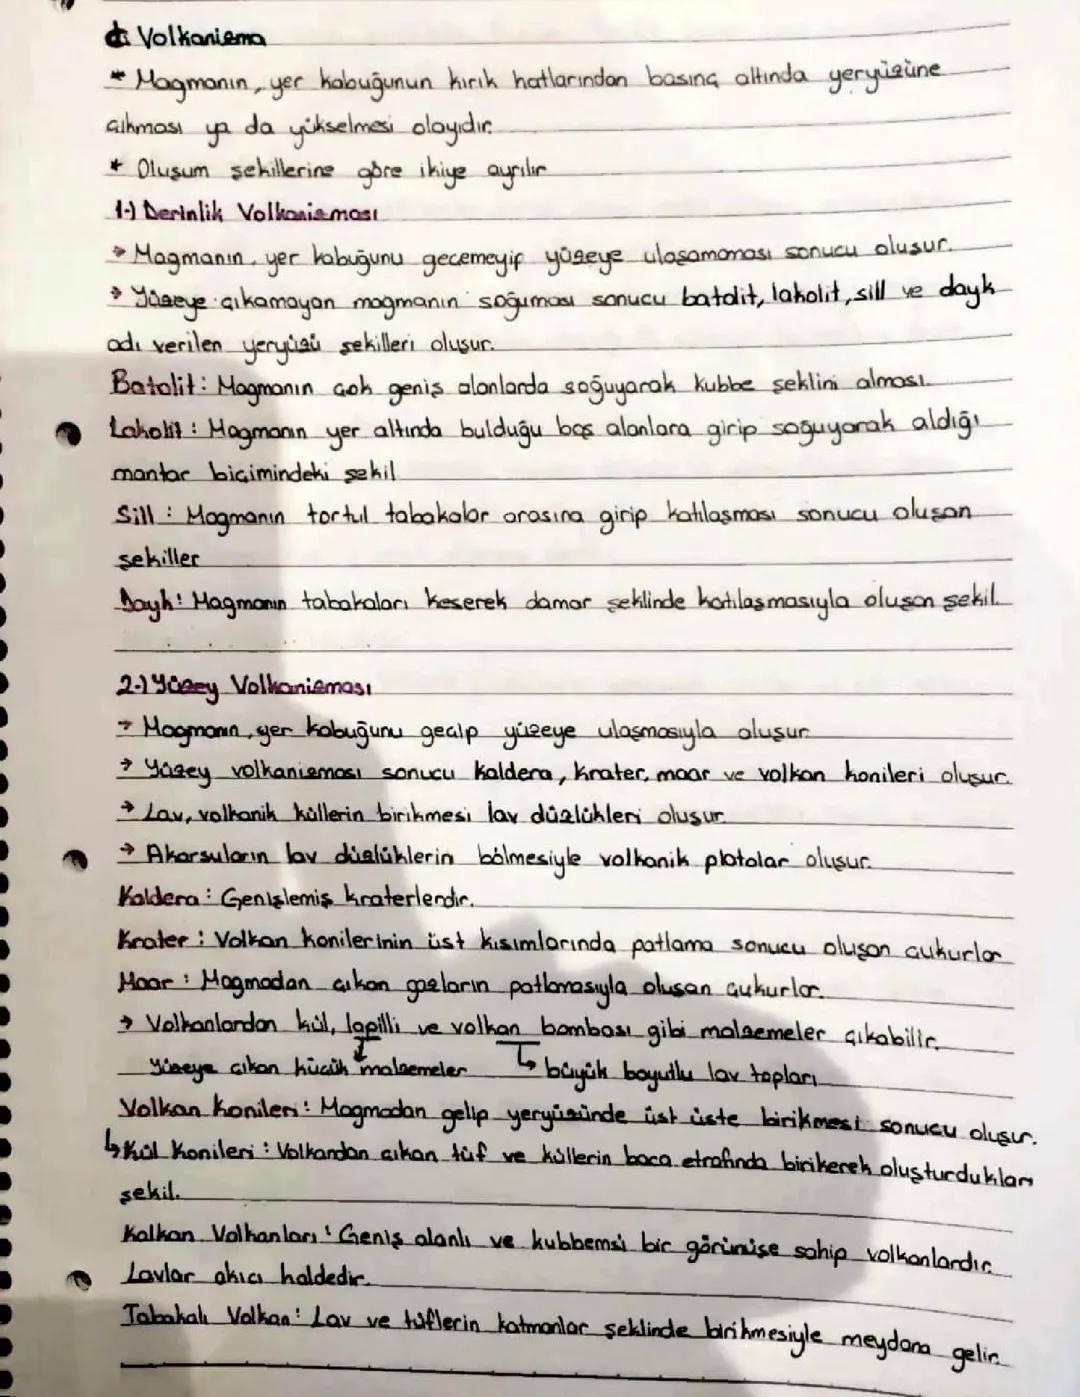 d. Volkanizma
* Magmanın, yer kabuğunun kırık hatlarından basınç altında yeryüzüne
çıkması ya da yükselmesi olayıdır.
* Oluşum şekillerine göre ikiye ayrılır
1-) Derinlik Volkanizması
→ Magmanın, yer kabuğunu geçemeyip yüzeye ulaşamaması sonucu oluşur.
→ Yüzeye çıkamayan magmanın soğuması sonucu batolit, lakolit, sill ve dayk
adı verilen yeryüzü şekilleri oluşur.
Batolit: Magmanın çok geniş alanlarda soğuyarak kubbe şeklini alması.
Lakolit: Magmanın yer altında bulduğu boş alanlara girip soğuyarak aldığı
mantar biçimindeki şekil
Sill: Magmanın tortul tabakalar arasına girip katılaşması sonucu oluşan
şekiller
Dayk: Magmanın tabakaları keserek damar şeklinde katılaşmasıyla oluşan şekil.
2-) Yüzey Volkanizması
→ Magmanın, yer kabuğunu geçip yüzeye ulaşmasıyla oluşur
→ Yüzey volkanizması sonucu kaldera, krater, maar ve volkan konileri oluşur.
→ Lav, volkanik küllerin birikmesi lav düzlükleri oluşur
→ Akarsuların lav düzlüklerin bölmesiyle volkanik platolar oluşur.
Kaldera: Genişlemiş kraterlerdir.
Krater: Volkan konilerinin üst kısımlarında patlama sonucu oluşan çukurlar
Maar: Magmadan çıkan gazların patlamasıyla oluşan çukurlar.
→ Volkanlardan kül, lapilli ve volkan bombası gibi malzemeler çıkabilir.
Yüzeye çıkan küçük malzemeler ↳ büyük boyutlu lav topları
Volkan Konileri: Magmadan gelip yeryüzünde üst üste birikmesi sonucu oluşur.
↳ Kül Konileri: Volkandan çıkan tüf ve küllerin baca etrafında birikerek oluşturdukları
şekil.
Kalkan Volkanları: Geniş alanlı ve kubbemsi bir görünüşe sahip volkanlardır.
Lavlar akıcı haldedir.
Tabakalı Volkan: Lav ve tüflerin katmanlar şeklinde birikmesiyle meydana gelir.